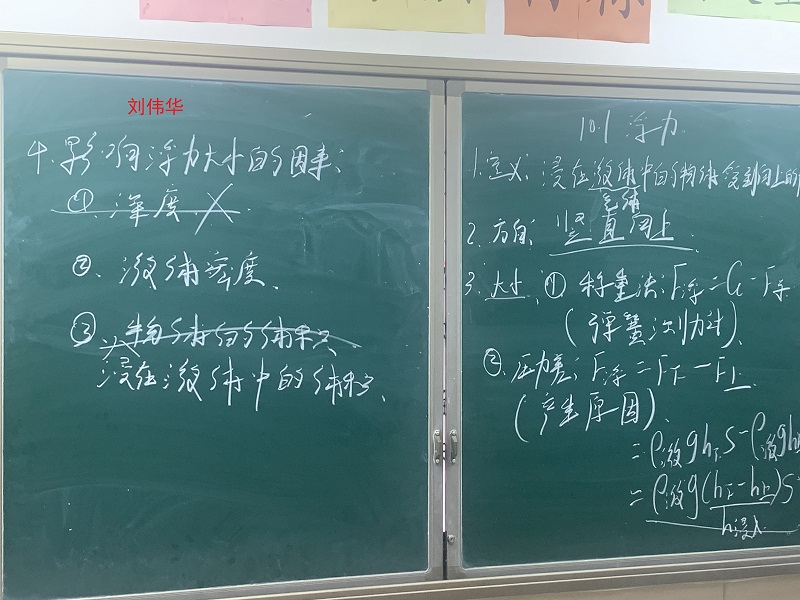 刘伟华
4.影响浮力大小的因素:
① 深度 ×
②、液体密度、
③ 物体的体积、
浸在液体中的体积、
10.1 浮力
1.定义:浸在液体中的物体受到向上的
气体
2.方向:竖直向上
3.大小:① 称重法:F浮=G-F示
(弹簧测力计)、
②.压力差:F浮=F下-F上
(产生原因).
=ρ液gh下S-ρ液gh
=ρ液g(h下-h上)S
h浸入